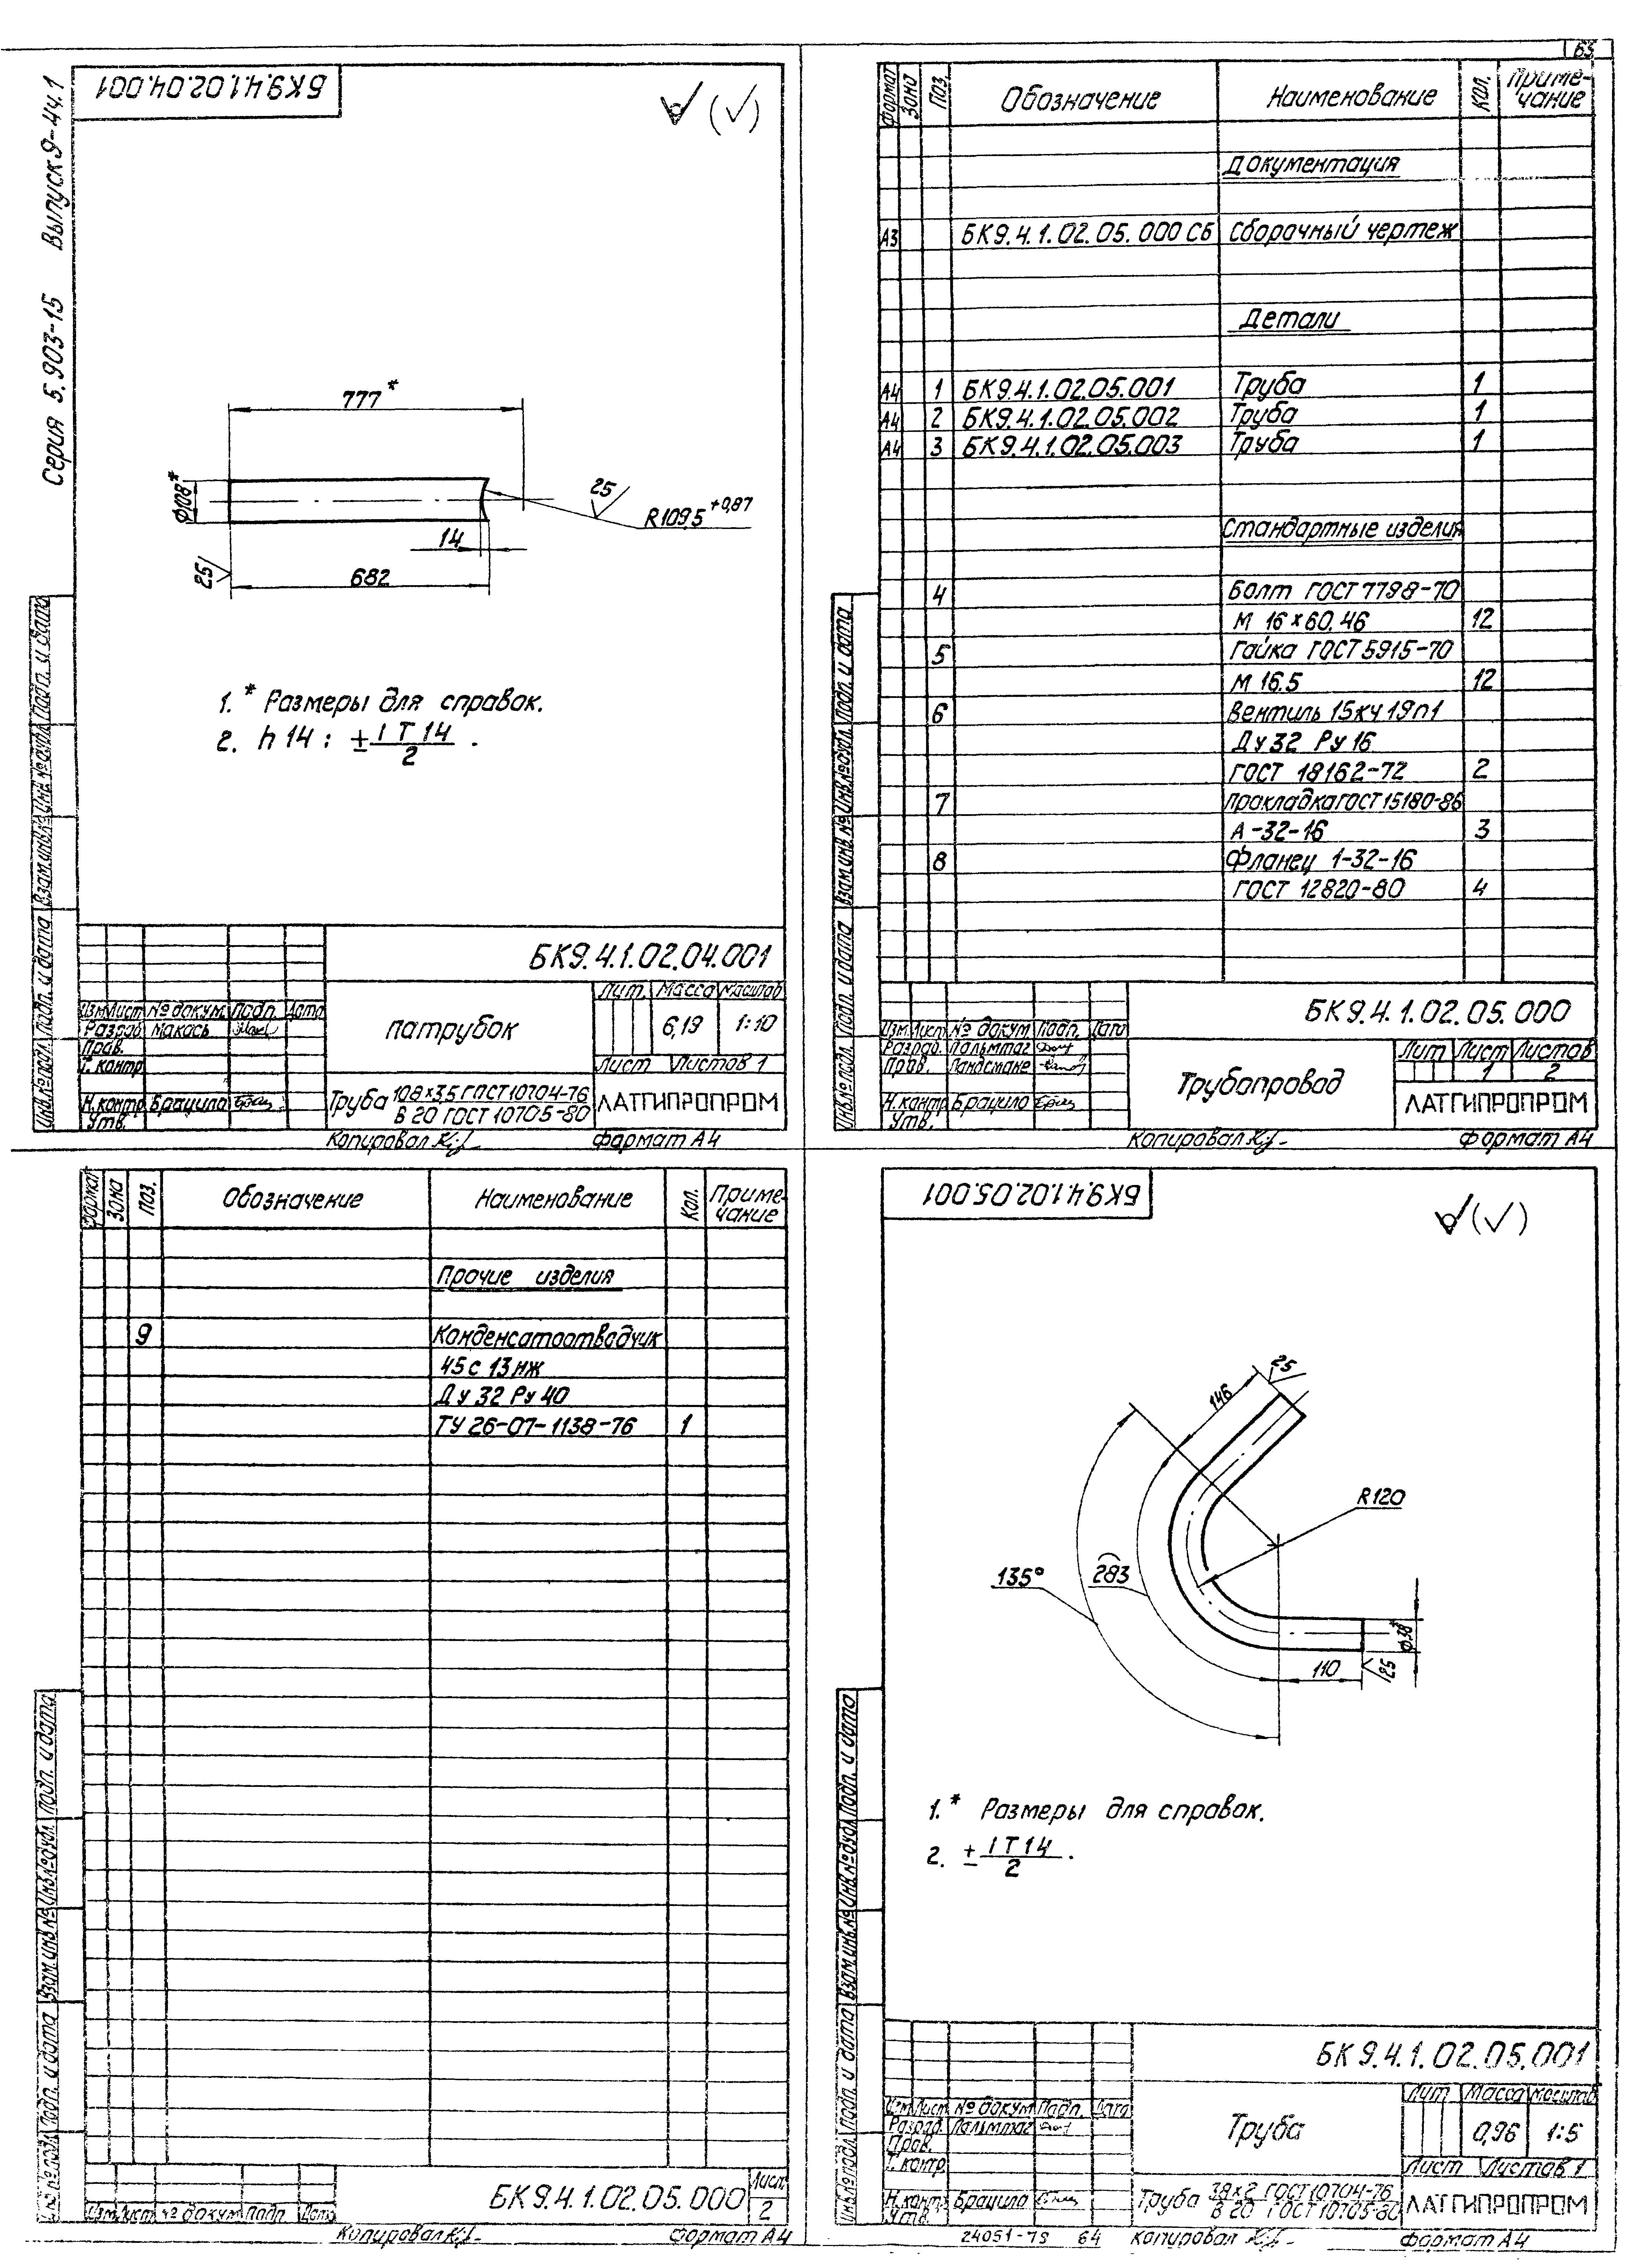 63
Серия 5.903-15 Выпуск 9-44.1
БК9.4.1.02.04.001
777*
Ф108*
25
R109,5 +0,87
14
25
682
1. * Размеры для справок.
2. h14 : ± IT14/2 .
Инв.№подл. Подп. и дата Взам.инв.№ Инв.№дубл. Подп. и дата
БК9.4.1.02.04.001
Изм. Лист № докум. Подп. Дата
Разраб. Макась
Пров.
Т. контр.
Н.контр. Брацило
Утв.
патрубок
Лит. Масса Масштаб
6,19 1:10
Лист Листов 1
Труба 108×3,5 ГОСТ 10704-76
В 20 ГОСТ 10705-80
ЛАТГИПРОПРОМ
Копировал формат А4
Формат Зона Поз. Обозначение Наименование Кол. Приме-
чание
Документация
А3 БК9.4.1.02.05.000 СБ Сборочный чертеж
Детали
А4 1 БК9.4.1.02.05.001 Труба 1
А4 2 БК9.4.1.02.05.002 Труба 1
А4 3 БК9.4.1.02.05.003 Труба 1
Стандартные изделия
4 Болт ГОСТ 7798-70
М 16×60.46 12
5 Гайка ГОСТ 5915-70
М 16.5 12
6 Вентиль 15кч19п1
Ду 32 Ру 16
ГОСТ 18162-72 2
7 Прокладка ГОСТ 15180-86
А-32-16 3
8 Фланец 1-32-16
ГОСТ 12820-80 4
Инв.№подл. Подп. и дата Взам.инв.№ Инв.№дубл. Подп. и дата
БК9.4.1.02.05.000
Изм. Лист № докум. Подп. Дата
Разраб. Пальмтаг
Пров. Ландсмане
Н.контр. Брацило
Утв.
Трубопровод
Лит Лист Листов
1 2
ЛАТГИПРОПРОМ
Копировал формат А4
Формат Зона Поз. Обозначение Наименование Кол. Приме-
чание
Прочие изделия
9 Конденсатоотводчик
45с 13нж
Ду 32 Ру 40
ТУ 26-07-1138-76 1
Инв.№подл. Подп. и дата Взам.инв.№ Инв.№дубл. Подп. и дата
Изм. Лист № докум. Подп. Дата
БК9.4.1.02.05.000
Лист
2
Копировал формат А4
БК9.4.1.02.05.001
25
146
R120
135°
283
Ф38*
110
25
1. * Размеры для справок.
2. ± IT14/2 .
Инв.№подл. Подп. и дата Взам.инв.№ Инв.№дубл. Подп. и дата
БК9.4.1.02.05.001
Изм. Лист № докум. Подп. Дата
Разраб. Пальмтаг
Пров.
Т. контр.
Н.контр. Брацило
Утв.
Труба
Лит Масса Масштаб
0,96 1:5
Лист Листов 1
Труба 38×2 ГОСТ 10704-76
В 20 ГОСТ 10705-80
ЛАТГИПРОПРОМ
24051-79 64 Копировал формат А4